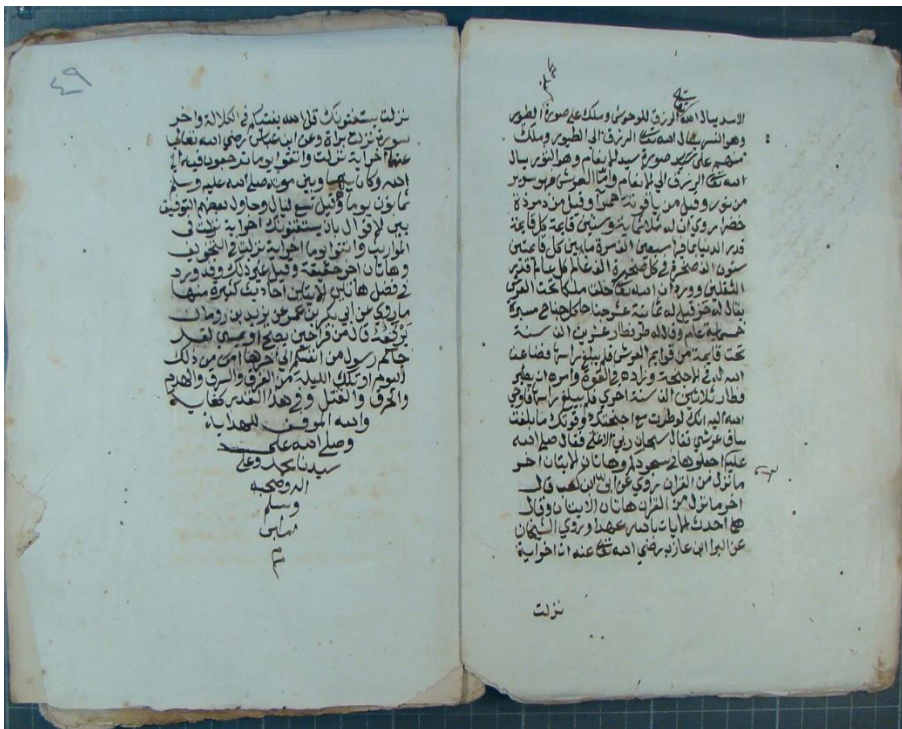 الاسد يسال الله تعالى الرزق للوحوش وملك على صورة الطيور
وهو النسر يسال الله تعالى الرزق الى الطيور وملك
منهم على صورة سيد الانعام وهو الثور يسال
الله تعالى الرزق الى الانعام واما العرش فهو سرير
من نور وقيل من ياقوتة حمرا وقيل من زمردة
خضرا روي ان له ثلاثماية وستين قايمة كل قايمة
قدر الدنيا بما فيها سبعين الف مرة ما بين كل قايمتين
ستون الف صخرة في كل صخيرة الف عالم كل عالم قدر
الثقلين وورد ان الله تعالى خلق ملكا تحت العرش
يقال له حز قيل له ثمانية عشر جناحا كل جناح مسيرة
خمسماية عام وقال له طر فطار عشرين الف سنة
تحت قايمة من قوايم العرش فلم يبلغ راسها فضاعف
الله له في الاجنحة وزاده في القوة وامره ان يطير
فطار ثلاثين الف سنة اخرى فلم يبلغ راسها فاوحى
الله اليه انك لو طرت مع اجنحتك وقوتك ما بلغت
ساق عرشي فقال سبحان ربي الاعلى فقال صلى الله
عليه اجعلوها في سجودكم وهاتان الايتان اخر
ما نزل من القران روي عن ابي ابن كعب قال
اخر ما نزل من القران هاتان الايتان وقال
هما احدث الايات بالله عهدا وروي الشيخان
عن البرا ابن عازب رضي الله تعالى عنه ان اخر اية
نزلت
٤٩
نزلت يستفتونك قل الله يفتيكم في الكلالة واخر
سورة نزلت براة وعن ابن عباس رضي الله تعالى
عنهما اخر اية نزلت واتقوا يوما ترجعون فيه الى
الله وكان بينها وبين موته صلى الله عليه وسلم
ثمانون يوما وقيل تسع ليال وحاول بعضهم التوفيق
بين الاقوال بان يستفتونك اخر اية نزلت في
المواريث واتقوا يوما اخر اية نزلت في التخويف
وهاتان اخر حقيقة وقيل غير ذلك وقد ورد
في فضل هاتين الايتين احاديث كثيرة منها
ما روي عن ابي بكر بن محمد عن يزيد بن رومان
يرفعه قال من قرا حين يصبح او يمسي لقد
جاكم رسول من انفسكم الى اخرها امن من ذلك
اليوم او تلك الليلة من الغرق والسرق والهدم
والحرق والقتل وفي هذا القدر كفاية
والله الموفق للهداية
وصلى الله على
سيدنا محمد وعلى
اله وصحبه
وسلم